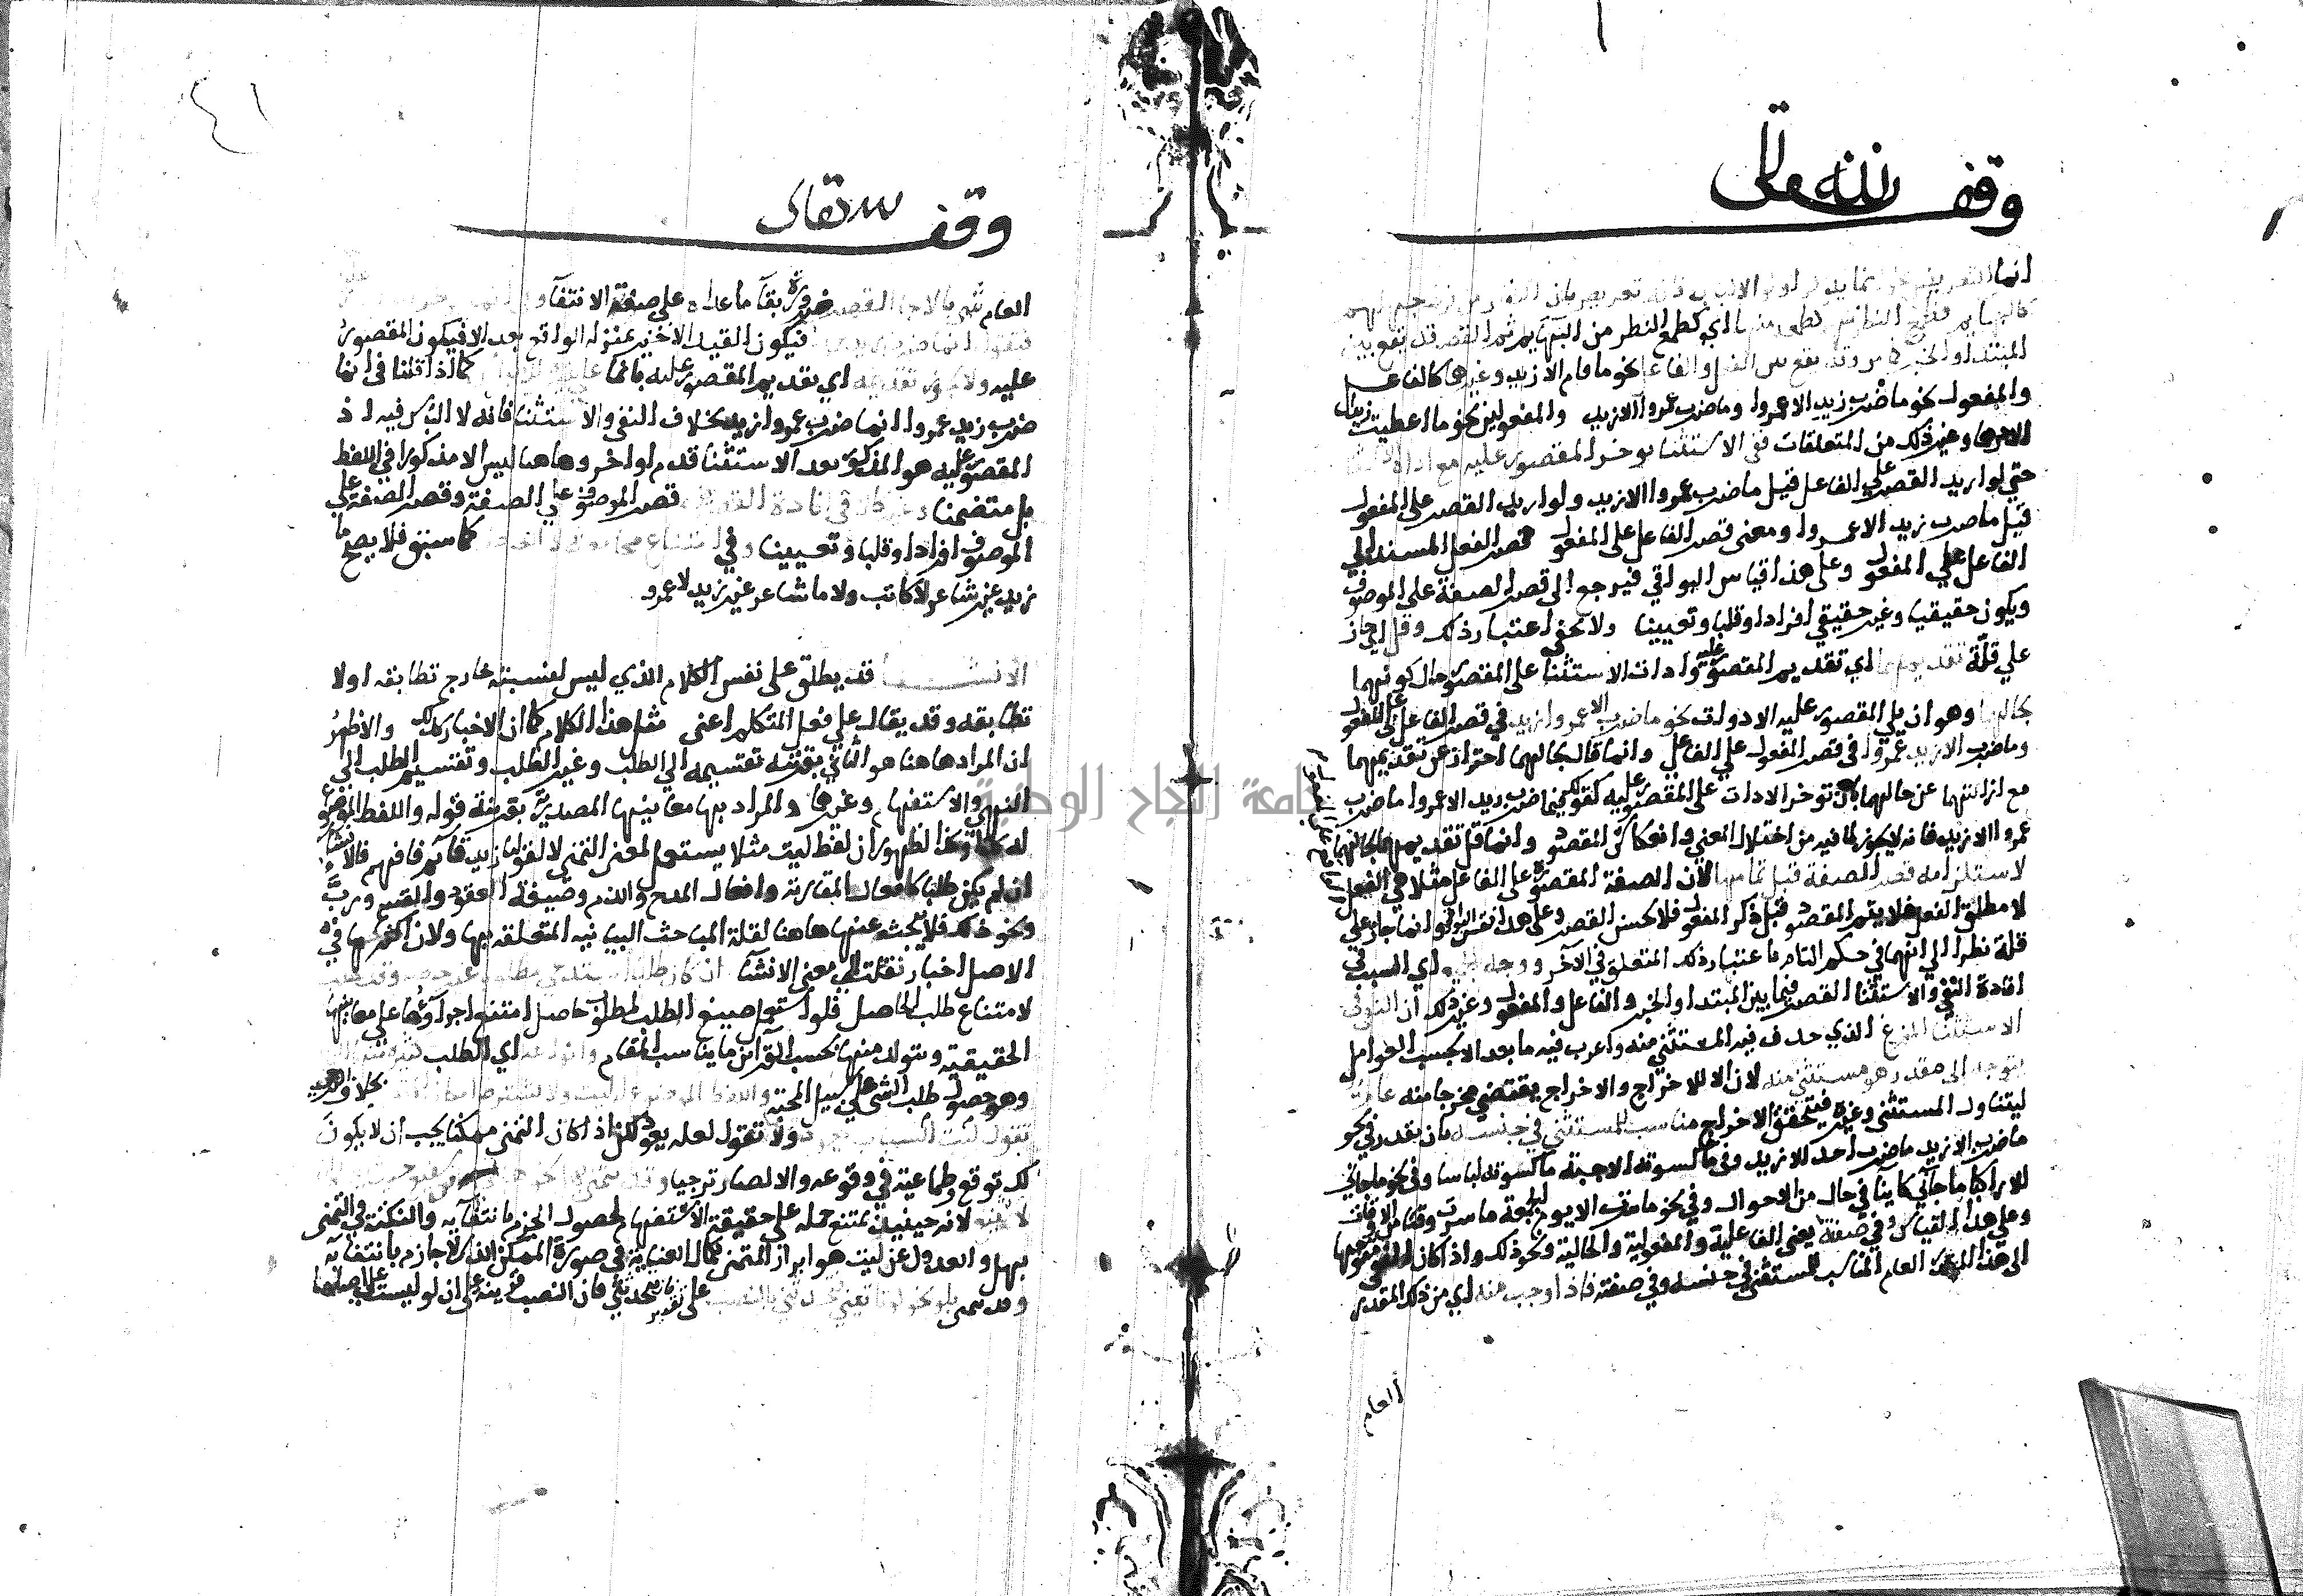 وقف لله تعالى
انما التعريض نحو انما يتذكر اولو الالباب فانه تعريض بان الكفار من فرط جهلهم
كالبهايم فطمع النظر منهم كطمعه منها اي كطمع النظر من البهايم ثم القصر قد يقع بين
المبتدا والخبر كما مر وقد يقع بين الفعل والفاعل نحو ما قام الا زيد وغيرهما كالفاعل
والمفعول نحو ما ضرب زيد الا عمروا وما ضرب عمروا الا زيد والمفعولين نحو ما اعطيت زيدا
الا درهما وغير ذلك من المتعلقات ففي الاستثنا يوخر المقصور عليه مع اداة الاستثنا
حتي لو اريد القصر علي الفاعل قيل ما ضرب عمروا الا زيد ولو اريد القصر على المفعول
قيل ما ضرب زيد الا عمروا ومعنى قصر الفاعل على المفعول قصر الفعل المسند الي
الفاعل علي المفعول وعلى هذا قياس البواقي فيرجع الى قصر الصفة علي الموصوف
ويكون حقيقيا وغير حقيقي افرادا وقلبا وتعيينا ولا يخفى اعتبار ذلك وقل اي جاز
علي قلة تقديمهما اي تقديم المقصور عليه وادات الاستثنا على المقصور حال كونهما
بحالهما وهو ان يلي المقصور عليه الادوات نحو ما ضرب الا عمروا زيد في قصر الفاعل على المفعول
وما ضرب الا زيد عمروا في قصر المفعول علي الفاعل وانما قال بحالهما احترازا عن تقديمهما
مع ازالتهما عن حالهما بان توخر الادات على المقصور عليه كقولك في ما ضرب زيد الا عمروا ما ضرب
عمروا الا زيد فانه لا يجوز لما فيه من اختلال المعني وانعكاس المقصود وانما قل تقديمهما بحالهما
لاستلزامه قصر الصفة قبل تمامها لان الصفة المقصورة على الفاعل مثلا هي الفعل
لا مطلق الفعل فلا يتم المقصود قبل ذكر المفعول فلا يحسن القصر وعلى هذا فقس البواقي وانما جاز علي
قلة نظرا الي انهما في حكم التام باعتبار ذلك المتعلق في الآخر ووجه الجميع اي السبب في
افادة النفي والاستثنا القصر فيما بين المبتدا والخبر والفاعل والمفعول وغير ذلك ان النفي في
الاستثنا المفرغ الذي حذف فيه المستثني منه واعرب فيه ما بعد الا بحسب العوامل
يتوجه الى مقدر هو مستثني منه لان الا للاخراج والاخراج يقتضي مخرجا منه عام
ليتناول المستثنى وغيره فيتحقق الاخراج مناسب للمستثني في جنسه بان يقدر في نحو
ما ضرب الا زيد ما ضرب احد الا زيد وفي ما كسوته الا جبة ما كسوته لباسا وفي نحو ما جاني
الا راكبا ما جاني كاينا في حال من الاحوال وفي نحو ما سرت الا يوم الجمعة ما سرت وقتا من الاوقات
وعلي هذا القياس وفي صفته يعني الفاعلية والمفعولية والحالية ونحو ذلك واذا كان النفي متوجها
الى هذا المقدر العام المناسب للمستثنى في جنسه وفي صفته فاذا اوجب منه اي من ذلك المقدر
العام
وقف لله تعالى
العام شي بالا جا القصر ضرورة بقآ ما عداه على صفة الانتفآ وفي انما يوخر
فتقول انما ضرب زيد فيكون القيد الاخير بمنزلة الواقع بعد الا فيكون المقصور
عليه ولا يجوز تقديمه اي تقديم المقصور عليه بانما على غيره كما اذا قلنا في انما
ضرب زيد عمروا انما ضرب عمروا زيد بخلاف النفي والاستثنا فانه لا التباس فيه اذ
المقصور عليه هو المذكور بعد الا استثنا قدم او اخر وها هنا ليس الا مذكورا في اللفظ
بل متضمنا وغير كالا في افادة القصرين قصر الموصوف علي الصفة وقصر الصفة علي
الموصوف افرادا وقلبا وتعيينا وفي امتناع مجامعة لا كما سبق فلا يصح ما
زيد غير شاعر لا كاتب ولا ما شاعر غير زيد لا عمرو
الانشا قد يطلق على نفس الكلام الذي ليس لنسبته خارج تطابقه اولا
تطابقه وقد يقال علي فعل المتكلم اعنى مثل هذا الكلام كما ان الاخبار كذلك والاظهر
ان المراد هاهنا هو الثاني بقرينه تقسيمه الي الطلب وغير الطلب وتقسيم الطلب الى
التمني والاستفهام وغيرها والمراد بها معانيها المصدرية بقرينة قوله واللفظ الموضوع
له كذا وكذا لظهور ان لفظ ليت مثلا يستعمل لمعنى التمني لا لقولنا ليت زيد قآئم فافهم فالانشآ
ان لم يكن طلبا كافعال المقاربة وافعال المدح والذم وصيغة العقود والقسم ورب
ونحو ذلك فلا يبحث عنها هاهنا لقلة المباحث البيانيه المتعلقه بها ولان اكثرها في
الاصل اخبار نقلت الي معنى الانشآ ان كان طلبا استدعى مطلوبا غير حاصل وقت الطلب
لامتناع طلب الحاصل فلو استعمل صيغ الطلب لمطلوب حاصل امتنع اجراؤها على معانيها
الحقيقية ويتولد منها بحسب القرآئن ما يناسب المقام وانواعه اي الطلب كثيرة منها التمني
وهو حصول طلب الشي علي سبيل المحبة واللفظ الموضوع له ليت ولا يشترط امكان المتمنى بخلاف الترجي
تقول ليت الشباب يعود ولا تقول لعله يعود لكن اذا كان التمنى ممكنا يجب ان لا يكون
لك توقع وطماعية في وقوعه والا لصار ترجيا وقد يتمنى بهل
لانه حينيذ يمتنع حمله على حقيقة الاستفهام لحصول الجزم بانتفآيه والنكتة في التمنى
بهل والعدول عن ليت هو ابراز المتمنى لكمال العناية في صورة الممكن الذي لا جازم بانتفآيه
وقد يتمنى بلو نحو لو تاتيني فتحدثني بالنصب على تقدير فان تحدثني فان النصب قرينة على ان لو ليست على اصلها